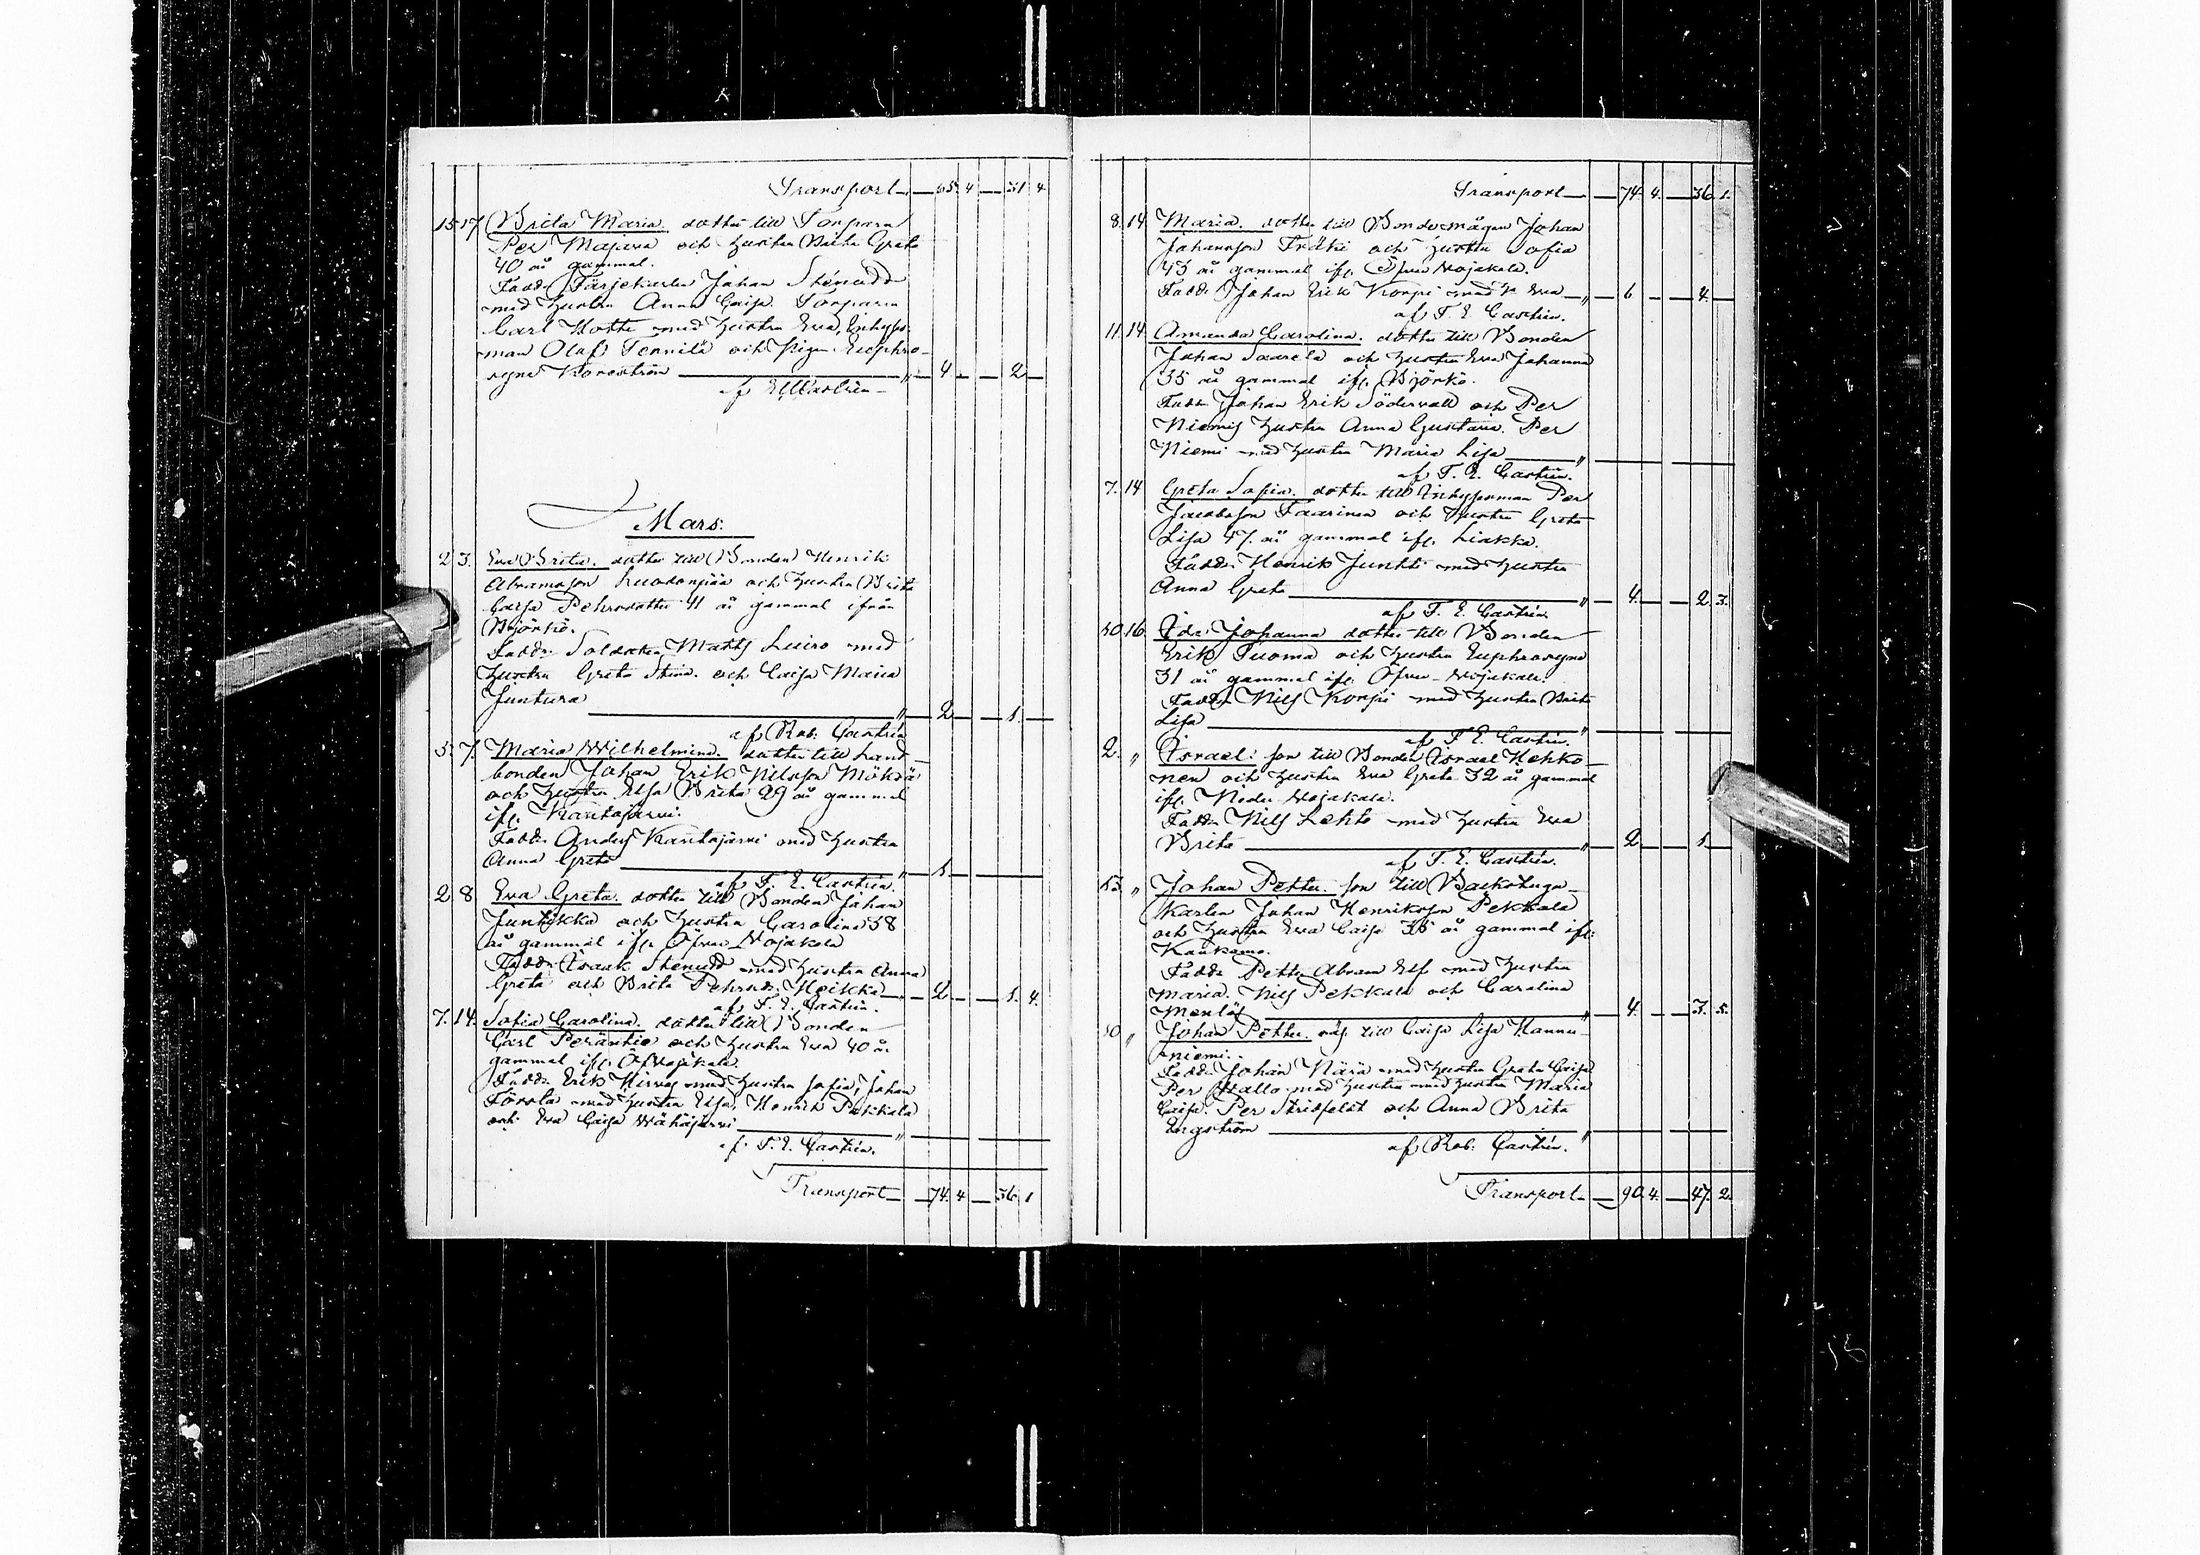 Transport — 65. 4 — 31 4
15 17 Brita Maria. dotter till Torparn
Per Majava och hustru Brita Greta
40 år gammal.
Fadd. Färjekarlen Johan Stenudd
med hustru Anna Caisa. Torparn
Carl Hotti med hustru Eva, Inhyses-
man Olof Tennilä och pigan Euphro-
syne " 4 — 2 —
af Castrén
Mars:
2 3. Eva Brita. dotter till Bonden Henrik
Abramsson och hustru Brita
Caisa Pehrsdotter 41 år gammal ifrån
Björkö.
Fadd. Soldaten Matts Luiro med
hustru Greta Stina. och Caisa Maria
Juntura " 2 — 1. —
af Rob: Castrén
5. 7. Maria Wilhelmina. dotter till Land-
bonden Johan Erik Nilsson
och hustru Elsa Brita 29 år gammal
ifr. Kantojärvi.
Fadd. Anders Kantojärvi med hustru
Anna Greta " 1 —
af F. E. Castrén.
2 8 Eva Greta. dotter till Bonden Johan
Juntikka och hustru Carolina 38
år gammal ifr. Öfver Vojakala
Fadd. Isaak Stenudd med hustru Anna
Greta och Brita Pehrsd. Heikka " 2 — 1. 4.
af F. E. Castrén.
7. 14. Sofia Carolina. dotter till Bonden
Carl Peräntie och hustru Eva 40 år
gammal ifr. Öfvojakala.
Fadd. Erik Hirvas med hustru Sofia, Johan
med hustru Elsa, Henrik Pekkala
och Eva Caisa Vähäjärvi "
af F. E. Castrén.
Transport — 74. 4 — 36. 1
Transport — 74. 4. — 36. 1.
8. 14. Maria. dotter till Bondemågen Johan
Johansson och hustru Sofia
43 år gammal ifr. Öfver Vojakala.
Fadd. Johan Erik Korpi med h. Eva " 6 — 4. —
af F. E. Castrén.
11. 14. Amanda Carolina. dotter till Bonden
Johan Saarela och hustru Eva Johanna
35 år gammal ifr. Björkö.
Fadd. Johan Erik Södervall och Per
Niemis hustru Anna Gustava. Per
Niemi med hustru Maria Lisa "
af F. E. Castrén.
7. 14 Greta Sofia. dotter till Inhysesman Per
Jacobsson Taarinen och hustru Greta
Lisa 47. år gammal ifr. Liakka.
Fadd. Henrik Juntti med hustru
Anna Greta " 4. — 2 3.
af F. E. Castrén
10. 16. Ida Johanna dotter till Bonden
Erik Tuoma och hustru Euphrosyne
31 år gammal ifr. Öfver-Vojakala.
Fadd. Nils Korpi med hustru Brita
Lisa "
af F. E. Castrén.
2. " Israel. son till Bonden Israel Hehko-
nen och hustru Eva Greta 32 år gammal
ifr. Neder Vojakala.
Fadd. Nils Lehto med hustru Eva
Brita " 2 — 1 —
af F. E. Castrén.
13. " Johan Petter. son till Backstuga-
karlen Johan Henriksson Pekkala
och hustru Eva Caisa 35 år gammal ifr:
Kaakamo.
Fadd. Petter Abram Elf med hustru
Maria. Nils Pekkala och Carolina
Menlös " 4. — 3. 5.
10 " Johan Petter. oäg. till Caisa Lisa Hannu-
niemi.
Fadd. Johan Närä med hustru Greta Caisa
Per Wallo med hustru med hustru Maria
Caisa. Per Stridfelt och Anna Brita
Engström "
af Rob: Castrén.
Transport — 90. 4. — 47. 2.